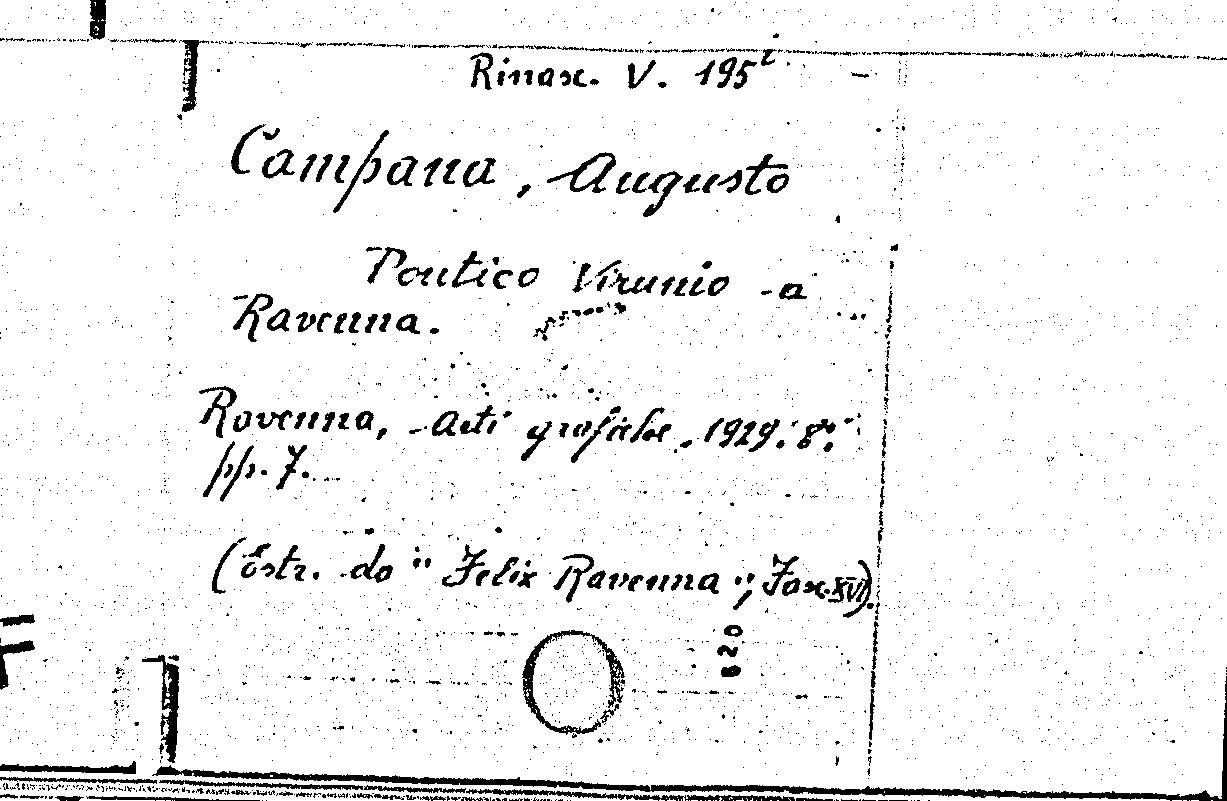 Rinasc. V. 195²
Campana, Augusto
Pontico Virunio a
Ravenna.
Ravenna, Arti grafiche. 1929. 8°.
pp. 7.
(Estr. da "Felix Ravenna", Fasc. XVI).
620